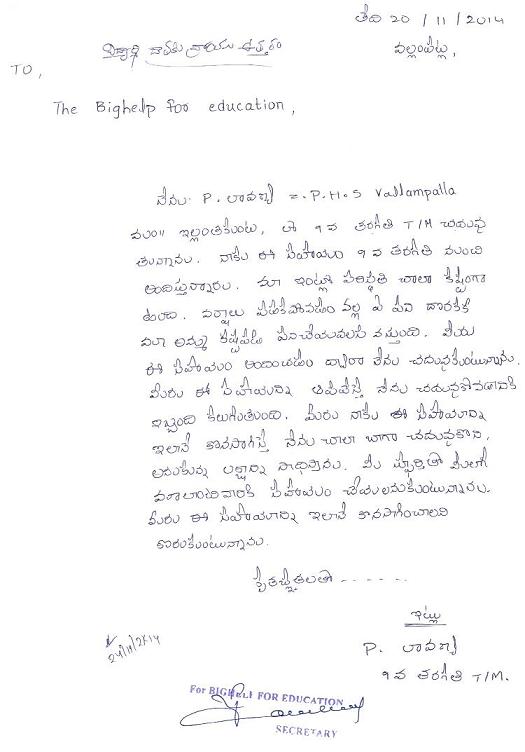 తేది 20 / 11 / 2014
వల్లంపట్ల,
విద్యార్థి దాతకు వ్రాయు ఉత్తరం
TO,
The Bighelp for education,
నేను P. లావణ్య =.P.H.S Vallampalla
మం॥ ఇల్లంతకుంట, లో 9వ తరగతి T/M చదువు
తున్నాను. నాకు ఈ సహాయం 9వ తరగతి నుంచి
అందిస్తున్నారు. మా ఇంట్లో పరిస్థితి చాలా కష్టంగా
ఉంది. వర్షాలు పడకపోవడం వల్ల ఏ పని దొరకక
మా అమ్మ కష్టపడి పనిచేయవలసి వస్తుంది. మీరు
ఈ సహాయం అందించడం ద్వారా నేను చదువుకుంటున్నాను.
మీరు ఈ సహాయాన్ని ఆపివేస్తే నేను చదువుకోవడానికి
ఇబ్బంది కలుగుతుంది. మీరు నాకు ఈ సహాయాన్ని
ఇలానే కొనసాగిస్తే నేను చాలా బాగా చదువుకొని,
అనుకున్న లక్ష్యాన్ని సాధిస్తాను. మీ స్ఫూర్తితో మీలాగే
మాలాంటివారికి సహాయం చేయాలనుకుంటున్నాను.
మీరు ఈ సహాయాన్ని ఇలానే కొనసాగించాలని
కోరుకుంటున్నాను.
కృతజ్ఞతలతో - - - - - -
ఇట్లు
P. లావణ్య
9వ తరగతి T/M.
24/11/2K14
For BIGHELP FOR EDUCATION
SECRETARY